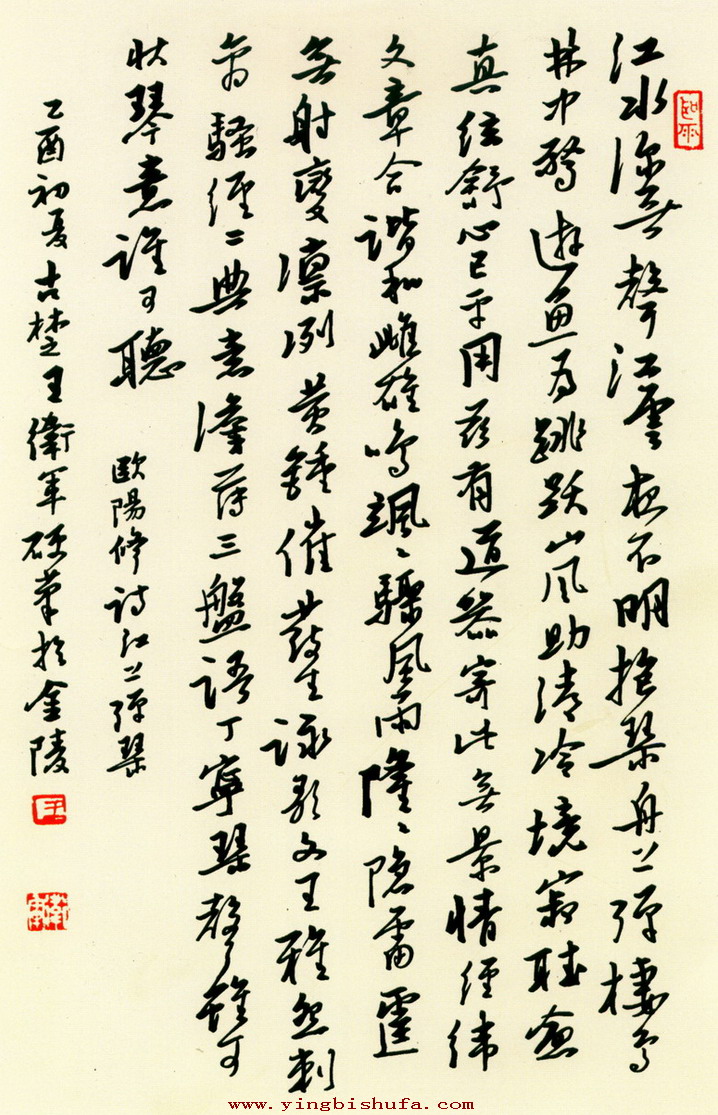 江水深無聲江雲夜不明抱琴舟上彈棲鳥
林中驚遊魚為跳跃山風助清冷境寂聽愈
真弦舒心已平用茲有道器寄此無景情經緯
文章合諧和雌雄鳴颯〻驟風雨隆〻隐雷霆
無射變凛冽黄鍾催發生詠歌文王雅怨刺
离騷經二典意澹薄三盤語丁寧琴聲雖可
狀琴意誰可聽 歐陽修詩江上彈琴
乙酉初夏古楚王衛軍硬筆於金陵
王
衛軍
www.yingbishufa.com